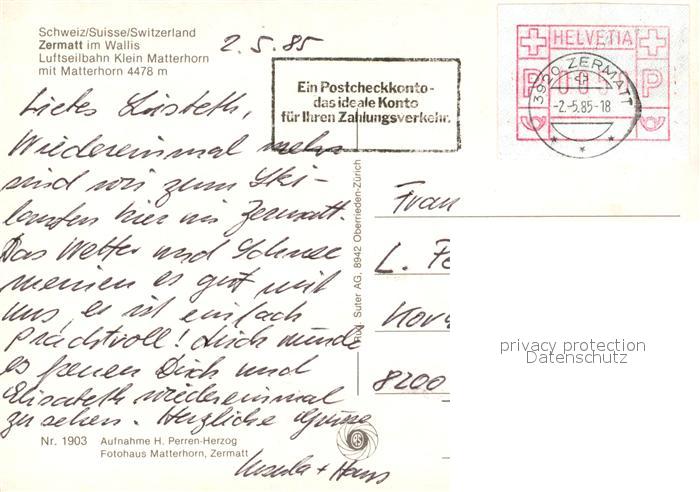 Schweiz/Suisse/Switzerland
Zermatt im Wallis
Luftseilbahn Klein Matterhorn
mit Matterhorn 4478 m
2.5.85
Ein Postcheckkonto -
das ideale Konto
für Ihren Zahlungsverkehr.
HELVETIA
P P
3920 ZERMATT
-2.-5.85-18
Liebes Lisbeth,
Wiedereinmal mehr
sind wir zum Ski-
laufen hier in Zermatt.
Das Wetter und Schnee
meinen es gut mit
uns, es ist einfach
Prachtvoll! Mich würde
es freuen Dich und
Elisabeth wiedereinmal
zu sehen. Herzliche Grüsse
Ursula + Hans
Frau
L. Fe
8200
Rud. Suter AG, 8942 Oberrieden-Zürich
Nr. 1903 Aufnahme H. Perren-Herzog
Fotohaus Matterhorn, Zermatt
RS
privacy protection
Datenschutz